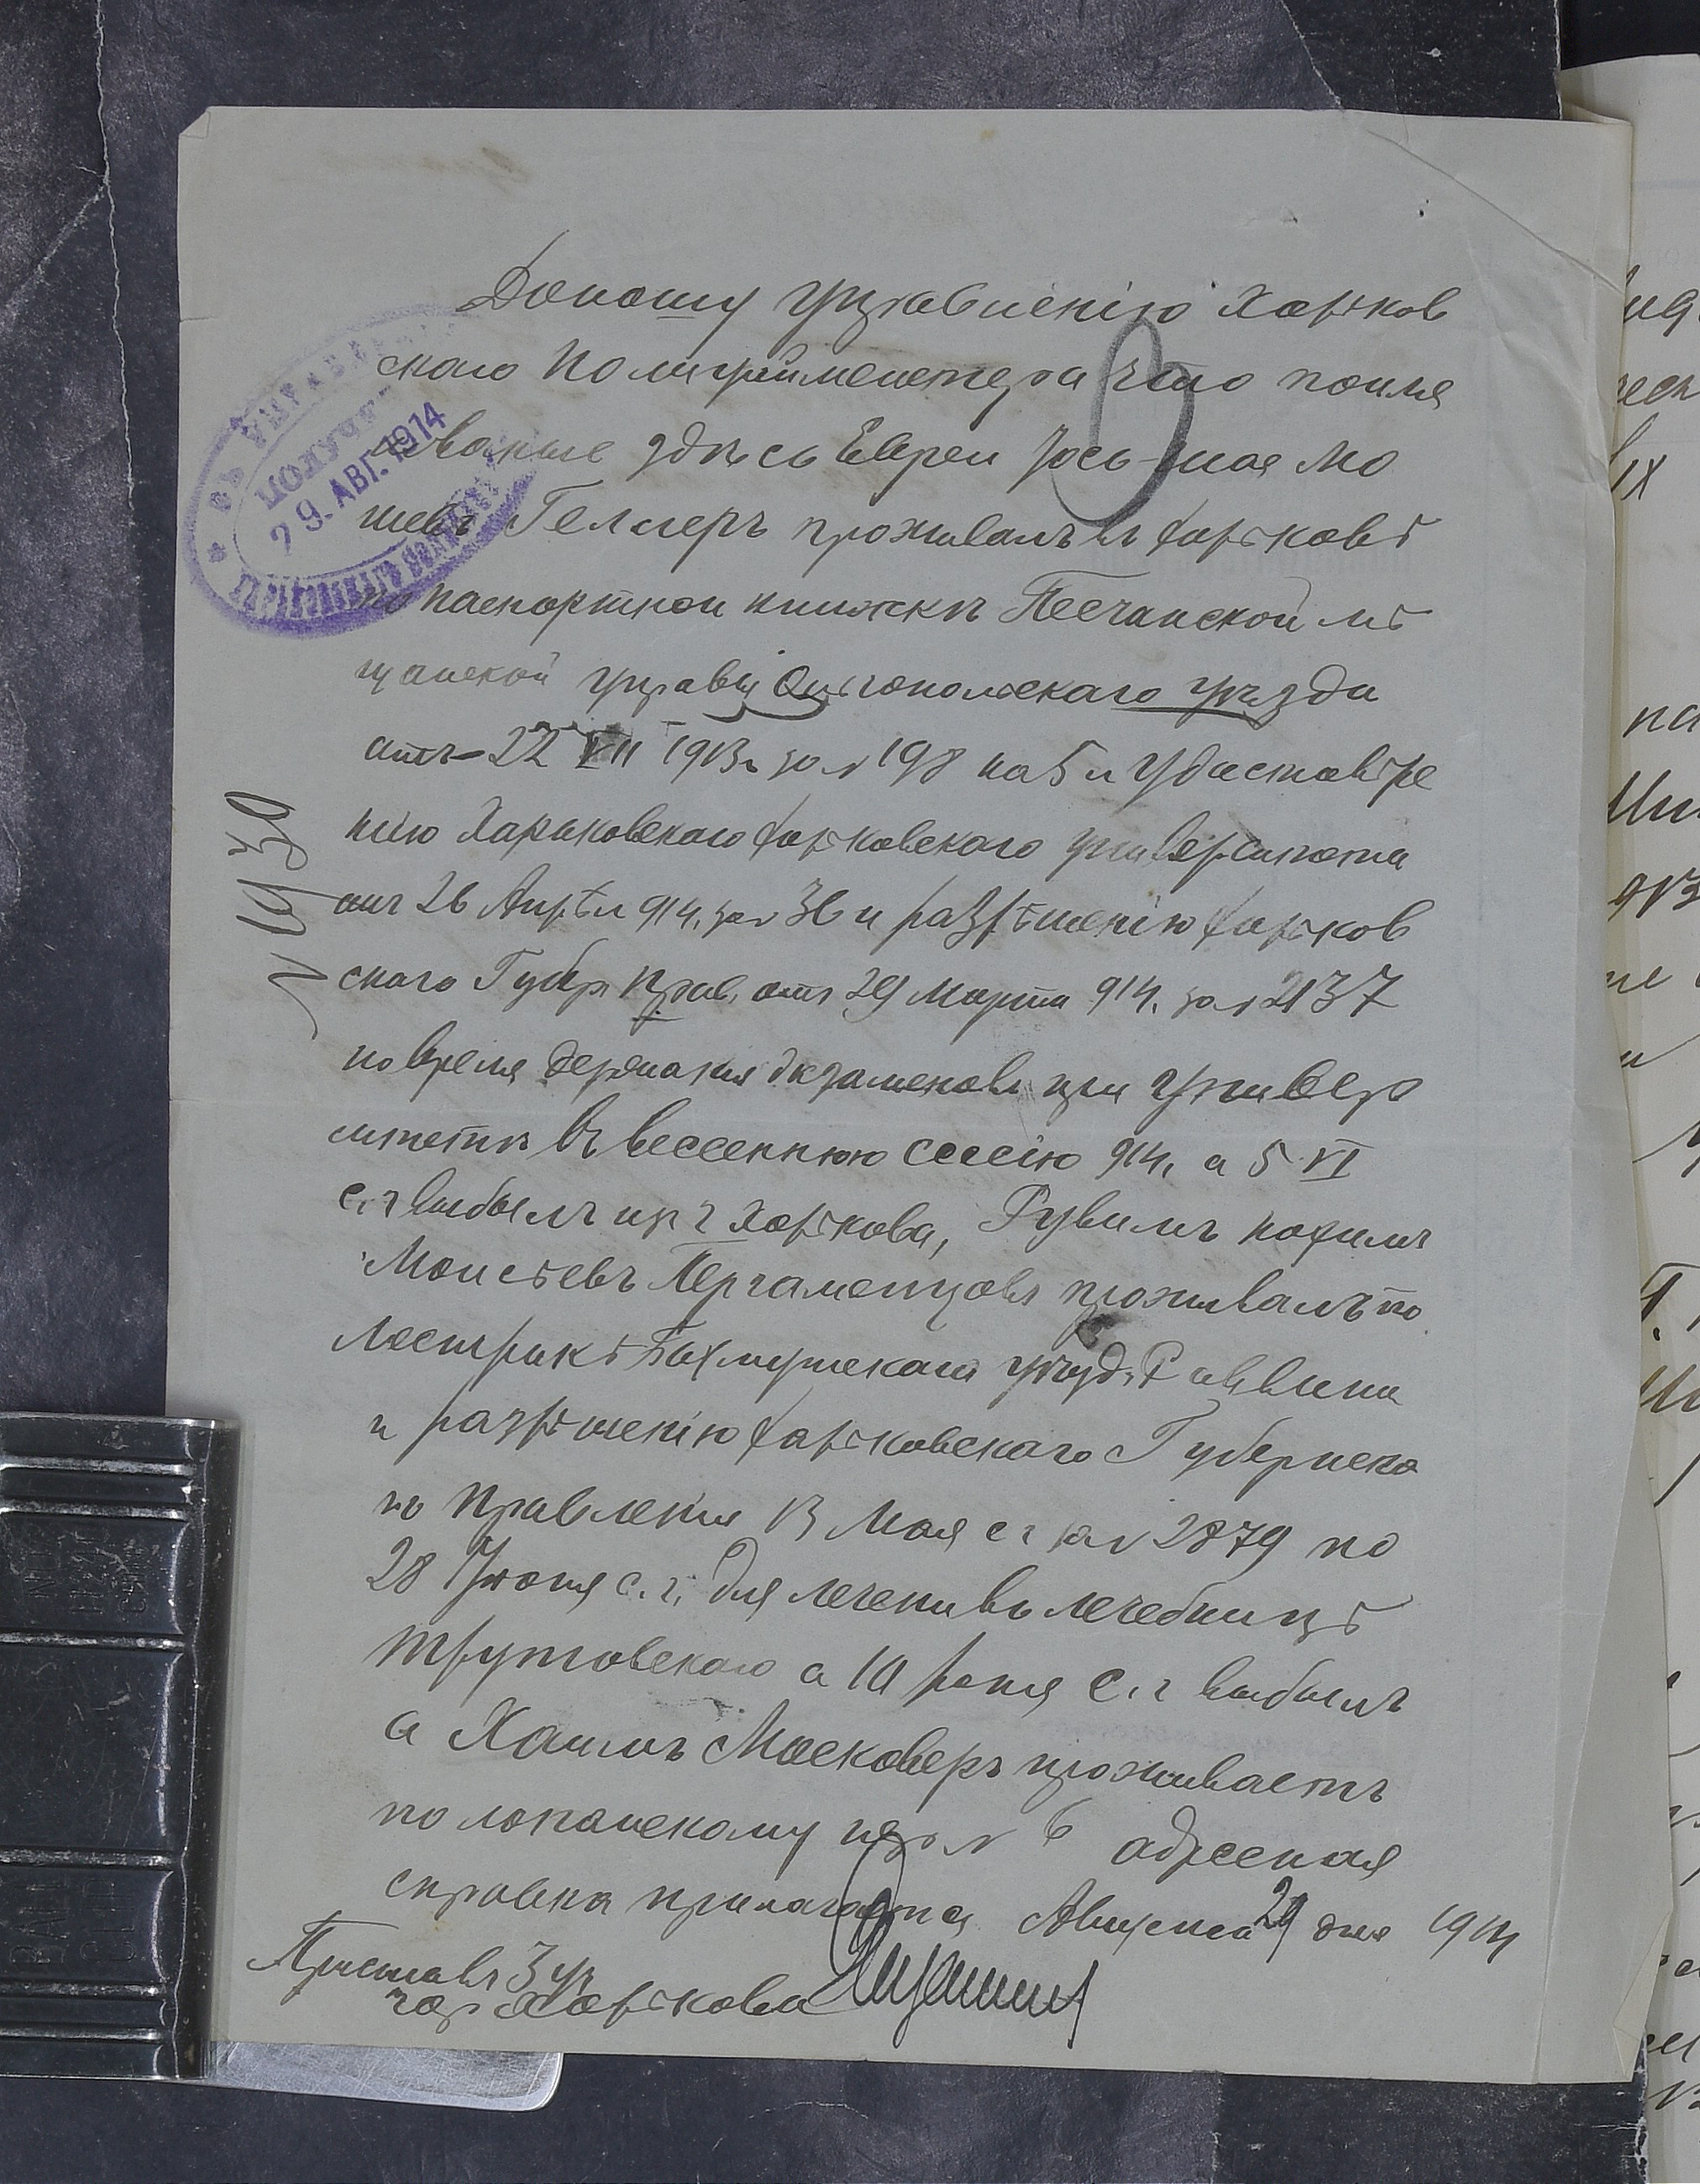 Доношу Управленію Харьков
скаго Полиціймейстера что поиме
нованые здѣсь Евреи Іось-Мая Мо
шевъ Геллеръ проживалъ въ Харьковѣ
по паспортной книжкѣ Песчанской мѣ
щанской управы Ольгопольскаго уѣзда
отъ 22 VII 1913г за № 198 на 5 л удостовѣре
нію Харьковскаго Харьковскаго университета
отъ 26 Апрѣля 914. за № 36 и разрѣшенію Харьков
скаго Губер. Прав. отъ 29 Марта 914. за № 2137
на время держанія экзаменовъ при универ
ситетѣ въ весеннюю сессію 914. а 5 VI
с.г выбылъ изъ г Харькова, Рувимъ
Моисѣевъ Пергаменщовъ проживалъ по
метрикѣ Бахмутскаго уѣзд. Раввина
и разрѣшенію Харьковскаго Губернска
го Правленія 13 Мая с г за № 2879 по
28 Іюня с. г. для леченія въ лечебницѣ
Трутовскаго а 10 Іюня с. г выбылъ
а Хаимъ Московеръ проживаетъ
по Лопанскому пер № 6 адресная
справка прилагается Августа 29 дня 1914
Приставъ 3 уч
гор Харькова
29. АВГ. 1914